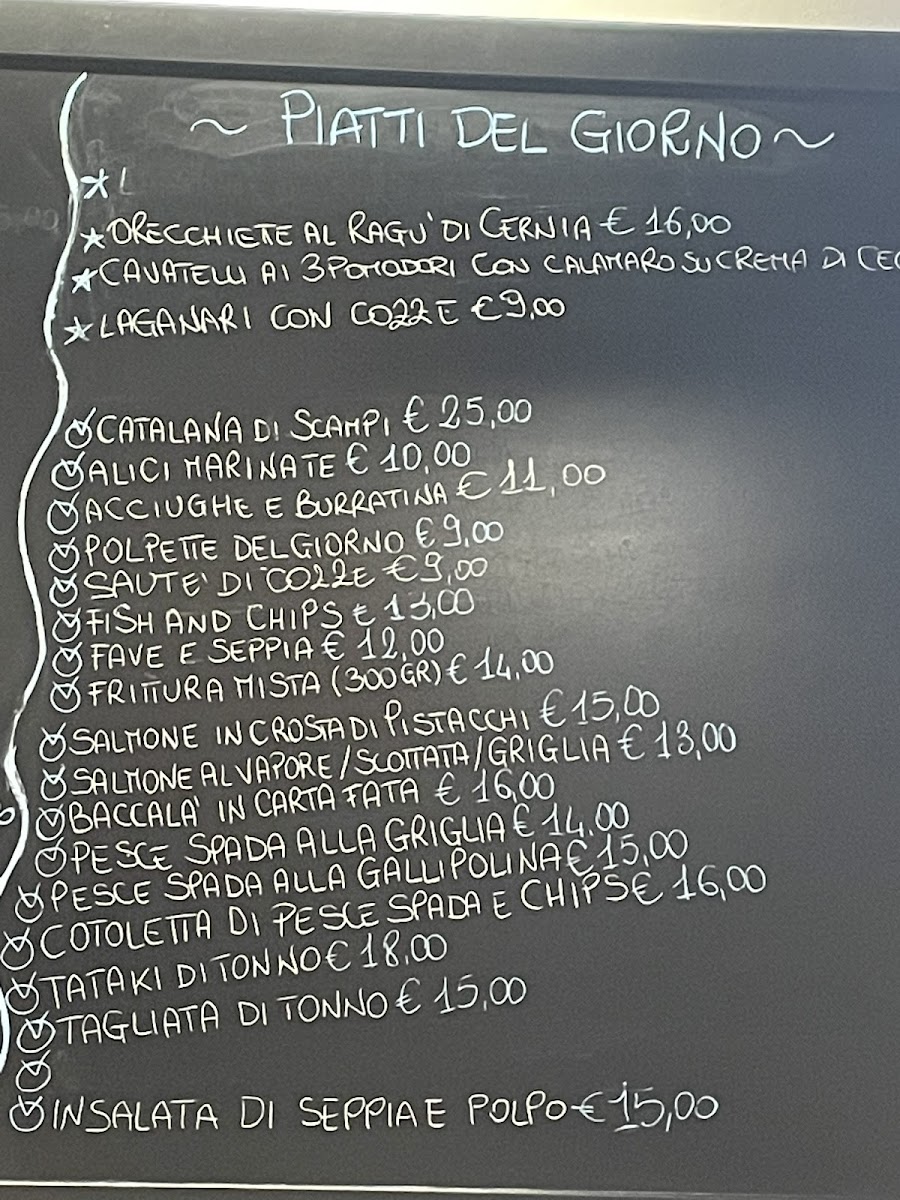 ~ PIATTI DEL GIORNO ~
* L
* ORECCHIETE AL RAGU' DI CERNIA € 16,00
* CAVATELLI AI 3 POMODORI CON CALAMARO SU CREMA DI CEC
* LAGANARI CON COZZE € 9,00
CATALANA DI SCAMPI € 25,00
ALICI MARINATE € 10,00
ACCIUGHE E BURRATINA € 11,00
POLPETTE DEL GIORNO € 9,00
SAUTE' DI COZZE € 9,00
FISH AND CHIPS € 13,00
FAVE E SEPPIA € 12,00
FRITTURA MISTA (300GR) € 14,00
SALMONE IN CROSTA DI PISTACCHI € 15,00
SALMONE AL VAPORE/SCOTTATA/GRIGLIA € 13,00
BACCALA' IN CARTA FATA € 16,00
PESCE SPADA ALLA GRIGLIA € 14.00
PESCE SPADA ALLA GALLIPOLINA € 15,00
COTOLETTA DI PESCE SPADA E CHIPS € 16,00
TATAKI DI TONNO € 18.00
TAGLIATA DI TONNO € 15,00
INSALATA DI SEPPIA E POLPO € 15,00